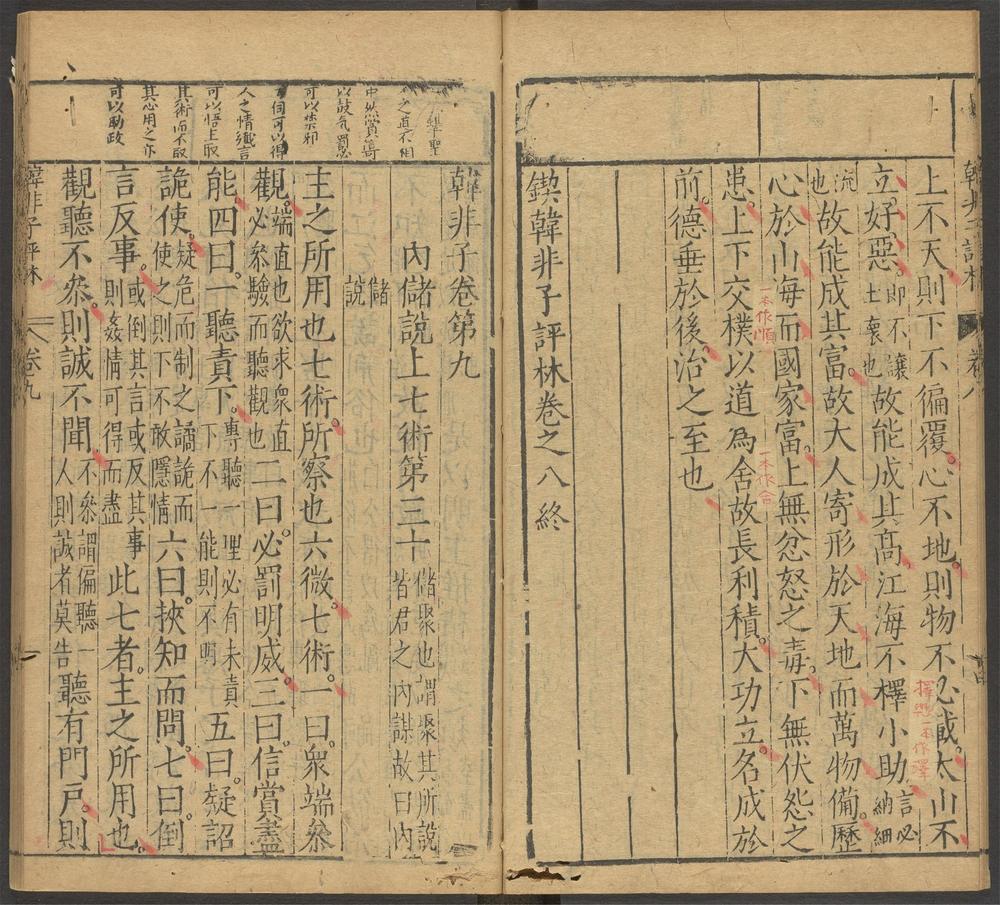 上不天則下不偏覆心不地則物不必載太山不
立好惡即不讓土壤也故能成其高江海不擇小助言必納細
流也故能成其富故大人寄形於天地而萬物備歷
心於山海而國家富上無忿怒之毒下無伏怨之
患上下交樸以道為舍故長利積大功立名成於
前德垂於後治之至也
擇與一本作澤
一本作順
一本作合
鍥韓非子評林卷之八終
韓非子卷第九
內儲說上七術第三十儲聚也謂聚其所說皆君之內謀故曰內
儲說
主之所用也七術所察也六微七術一曰眾端參
觀端直也欲求眾直必參驗而聽觀也二曰必罰明威三曰信賞盡
能四曰一聽責下專聽一理必有未責下不一能則不明五曰疑詔
詭使疑危而制之譎詭而使之則下不敢隱情六曰挾知而問七曰倒
言反事或倒其言或反其事則姦情可得而盡此七者主之所用也
觀聽不參則誠不聞不參謂偏聽一人則誠者莫告聽有門戶則
之直不相
中然賞譽
以鼓氣罰必
可以禁邪
伺可以得
人之情纖言
可以悟上取
其術而不取
其心用之亦
可以助政
韓非子評林
卷九